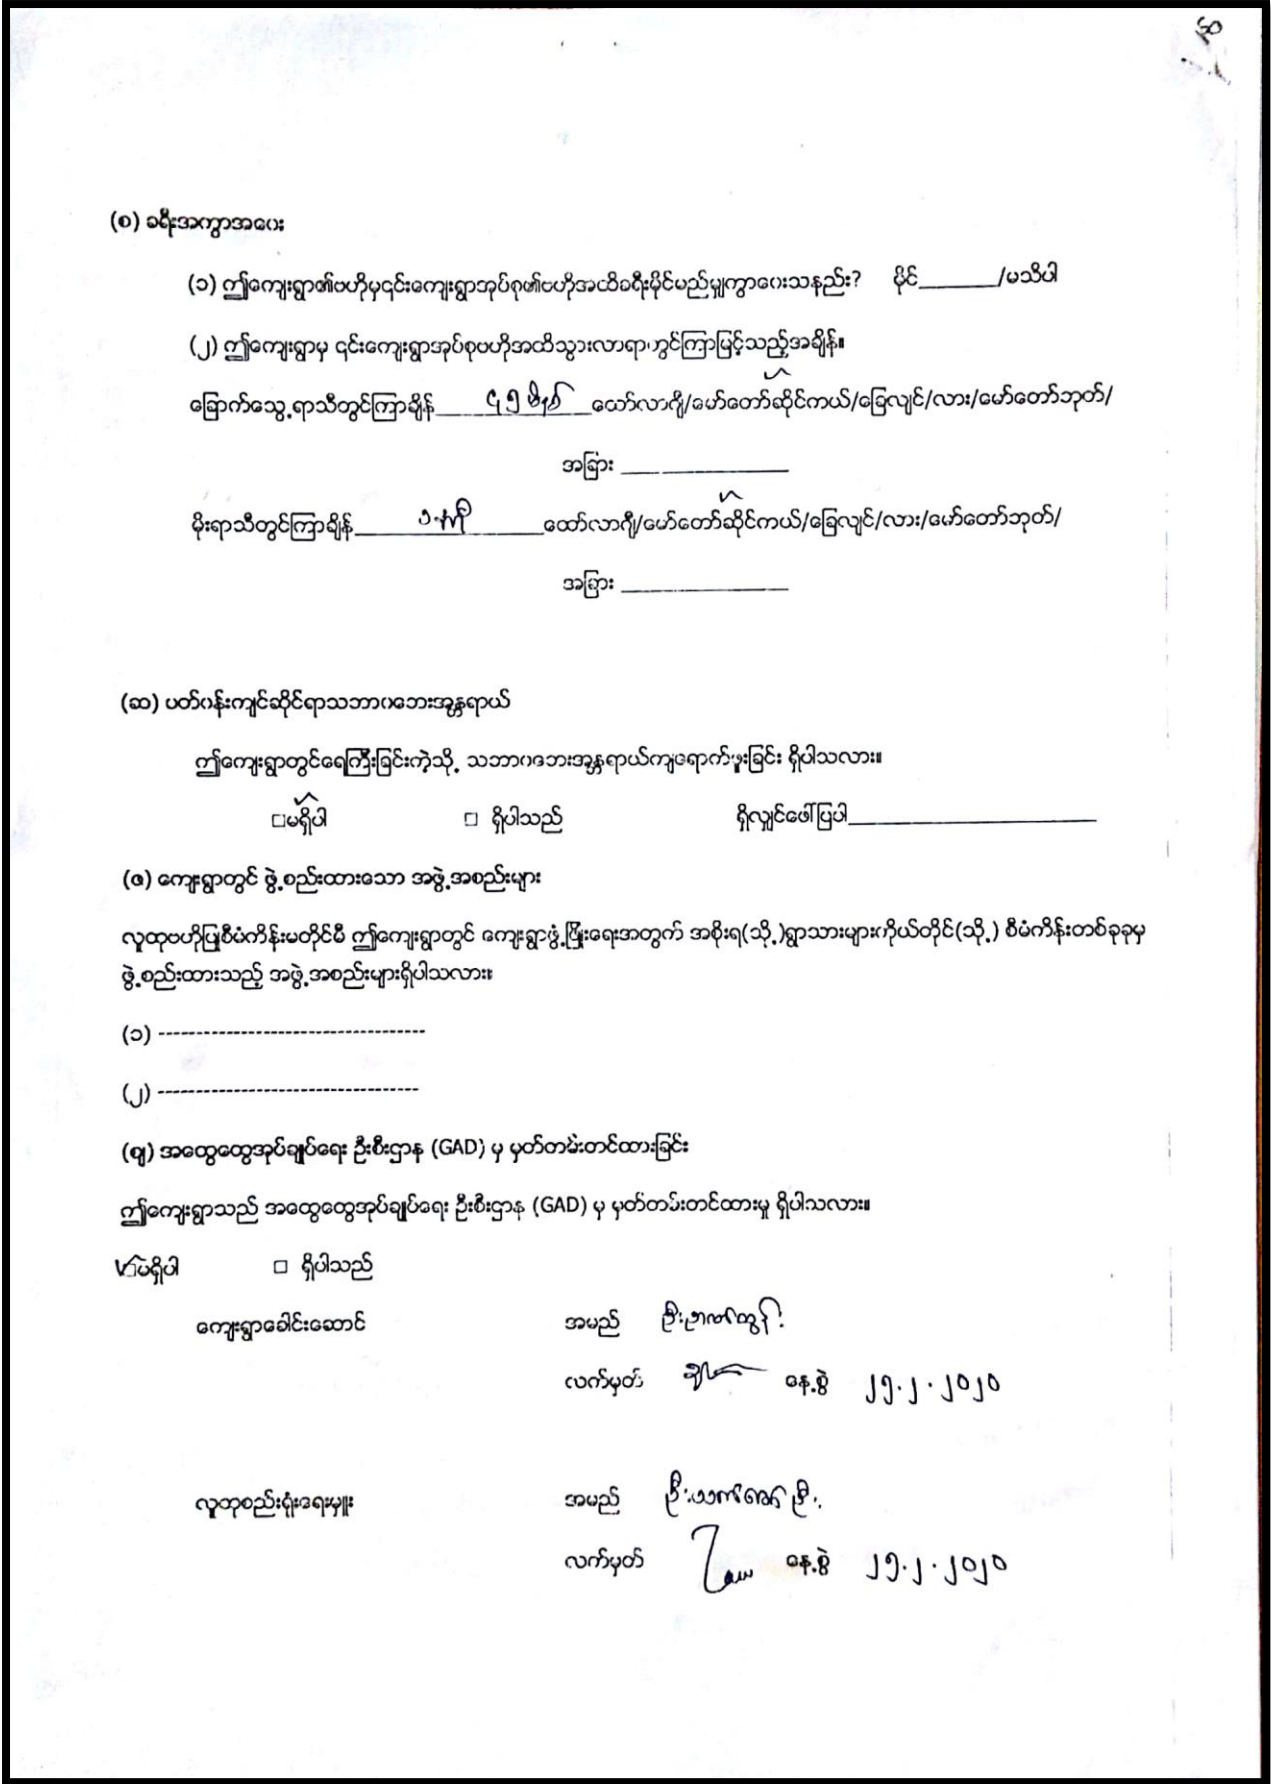 (စ) ခရီးအကွာအဝေး
(၁) ဤကျေးရွာ၏ဗဟိုမှ၎င်းကျေးရွာအုပ်စု၏ဗဟိုအထိခရီးမိုင်မည်မျှကွာဝေးသနည်း? မိုင်______/မသိပါ
(၂) ဤကျေးရွာမှ ၎င်းကျေးရွာအုပ်စုဗဟိုအထိသွားလာရာတွင်ကြာမြင့်သည့်အချိန်။
ခြောက်သွေ့ရာသီတွင်ကြာချိန် ၄၅ မိနစ် ထော်လာဂျီ/မော်တော်ဆိုင်ကယ်/ခြေလျင်/လား/မော်တော်ဘုတ်/
အခြား ____________
မိုးရာသီတွင်ကြာချိန် ၁ နာရီ ထော်လာဂျီ/မော်တော်ဆိုင်ကယ်/ခြေလျင်/လား/မော်တော်ဘုတ်/
အခြား ____________
(ဆ) ပတ်ဝန်းကျင်ဆိုင်ရာသဘာဝဘေးအန္တရာယ်
ဤကျေးရွာတွင်ရေကြီးခြင်းကဲ့သို့ သဘာဝဘေးအန္တရာယ်ကျရောက်ဖူးခြင်း ရှိပါသလား။
☑မရှိပါ □ ရှိပါသည် ရှိလျှင်ဖော်ပြပါ____________
(ဇ) ကျေးရွာတွင် ဖွဲ့စည်းထားသော အဖွဲ့အစည်းများ
လူထုဗဟိုပြုစီမံကိန်းမတိုင်မီ ဤကျေးရွာတွင် ကျေးရွာဖွံ့ဖြိုးရေးအတွက် အစိုးရ(သို့)ရွာသားများကိုယ်တိုင်(သို့) စီမံကိန်းတစ်ခုခုမှ
ဖွဲ့စည်းထားသည့် အဖွဲ့အစည်းများရှိပါသလား။
(၁) -----------------------------------
(၂) -----------------------------------
(ဈ) အထွေထွေအုပ်ချုပ်ရေး ဦးစီးဌာန (GAD) မှ မှတ်တမ်းတင်ထားခြင်း
ဤကျေးရွာသည် အထွေထွေအုပ်ချုပ်ရေး ဦးစီးဌာန (GAD) မှ မှတ်တမ်းတင်ထားမှု ရှိပါသလား။
☑မရှိပါ □ ရှိပါသည်
ကျေးရွာခေါင်းဆောင် အမည် ဦး
လက်မှတ် နေ့စွဲ ၂၅.၂.၂၀၂၀
လူထုစည်းရုံးရေးမှူး အမည် ဦး
လက်မှတ် နေ့စွဲ ၂၅.၂.၂၀၂၀